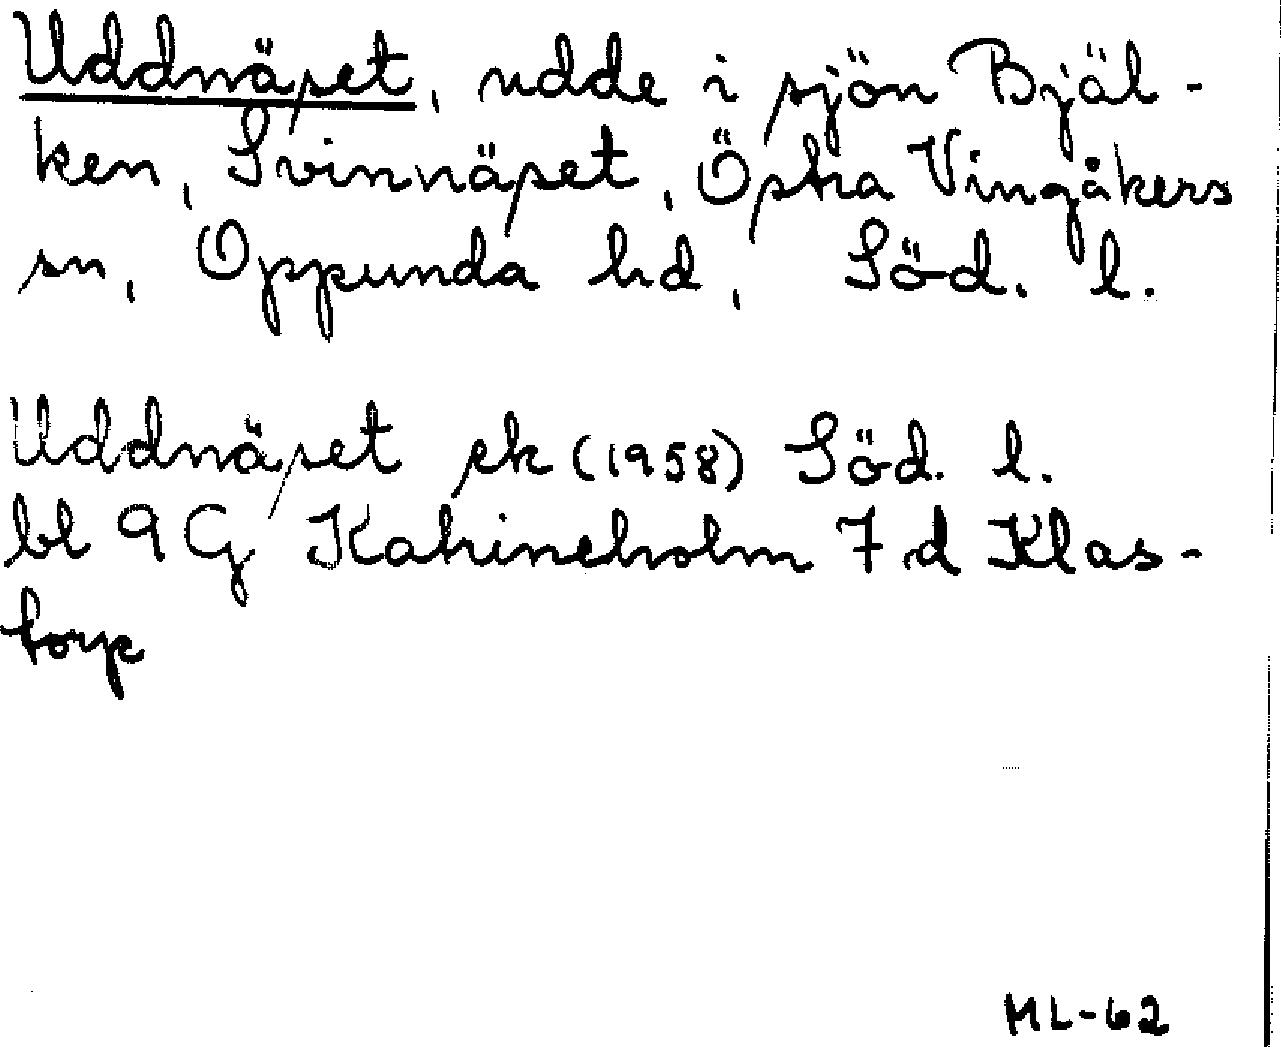 Uddnäset, udde i sjön Bjäl-
ken, Svinnäset, Östra Vingåkers
sn, Oppunda hd, Söd. l.
Uddnäset ek (1958) Söd. l.
bl 9G Katrineholm 7d Klas-
torp
ML-62